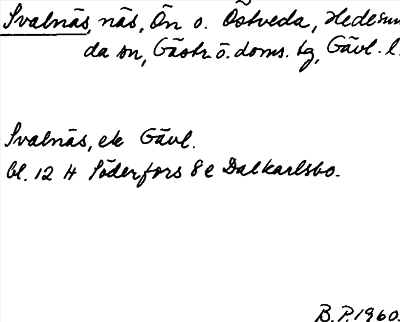 Svalnäs, näs, Ön o. Östveda, Hedesun
da sn, Gästr. ö. doms. tg, Gävl. l.
Svalnäs, ek Gävl.
bl. 12 H Söderfors 8 e Dalkarlsbo.
B.P. 1960.